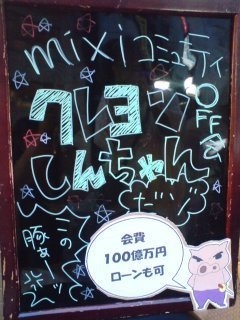 mixiコミュティ
クレヨン
OFF会
しんちゃん
だゾ
この
豚ぁー
会費
100億万円
ローンも可